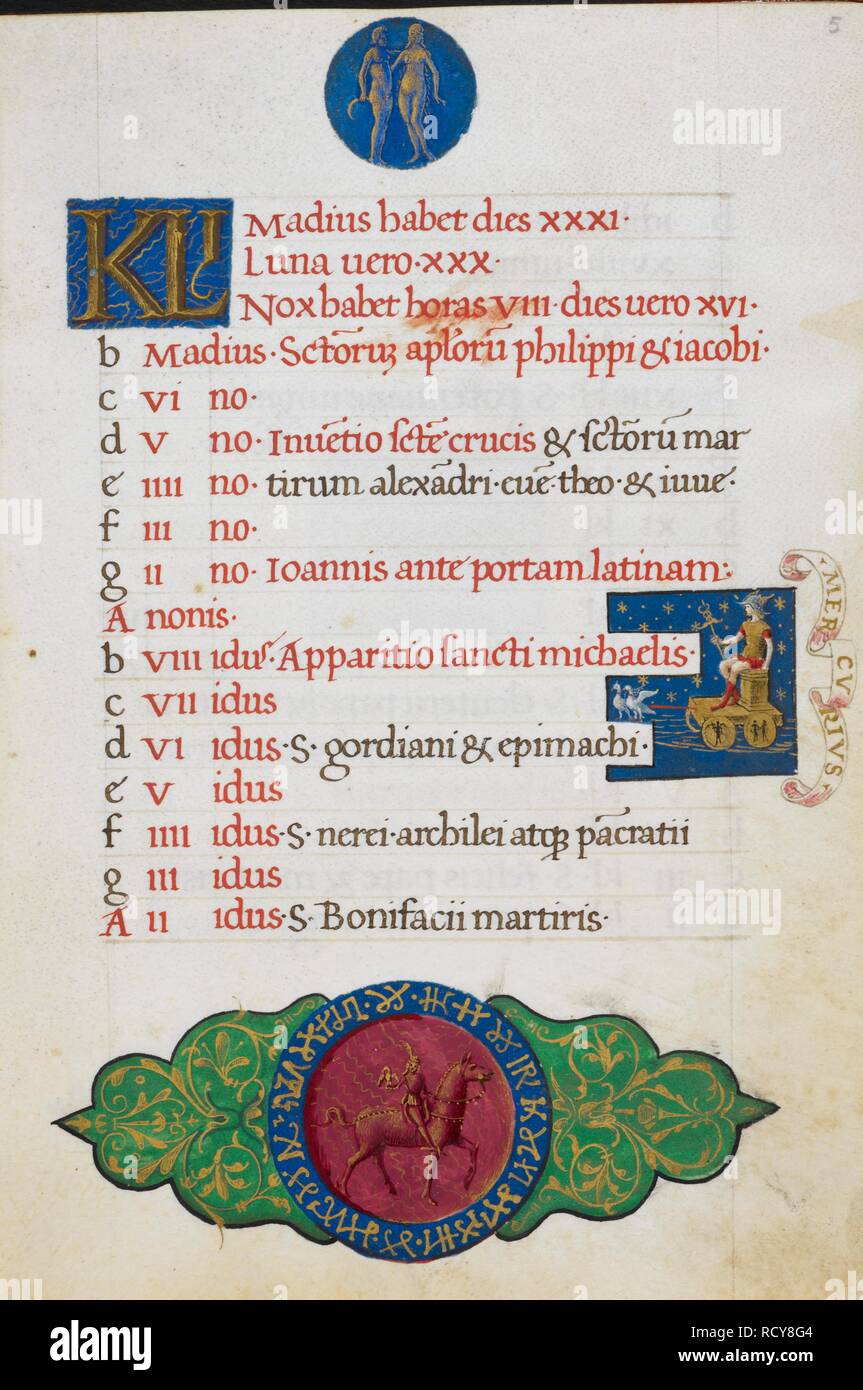 5
KL Madius habet dies xxxi·
Luna uero·xxx·
Nox habet horas viii·dies uero xvi·
b Madius·Sctōruꝫ aplʼorū philippi & iacobi·
c vi no·
d v no·Inuētio sctē crucis & sctōrū mar
e iiii no·tirum alexādri·euē·theo·& iuue·
f iii no·
g ii no·Ioannis ante portam latinam:
A nonis·
b viii idus·Apparitio sancti michaelis·
c vii idus
MERCVRIVS
d vi idus·S·gordiani & epimachi·
e v idus
f iiii idus·S·nerei·archilei atqꝫ pācratii
g iii idus
A ii idus·S·Bonifacii martiris·
alamy
a
Image ID: RCY8G4
www.alamy.com